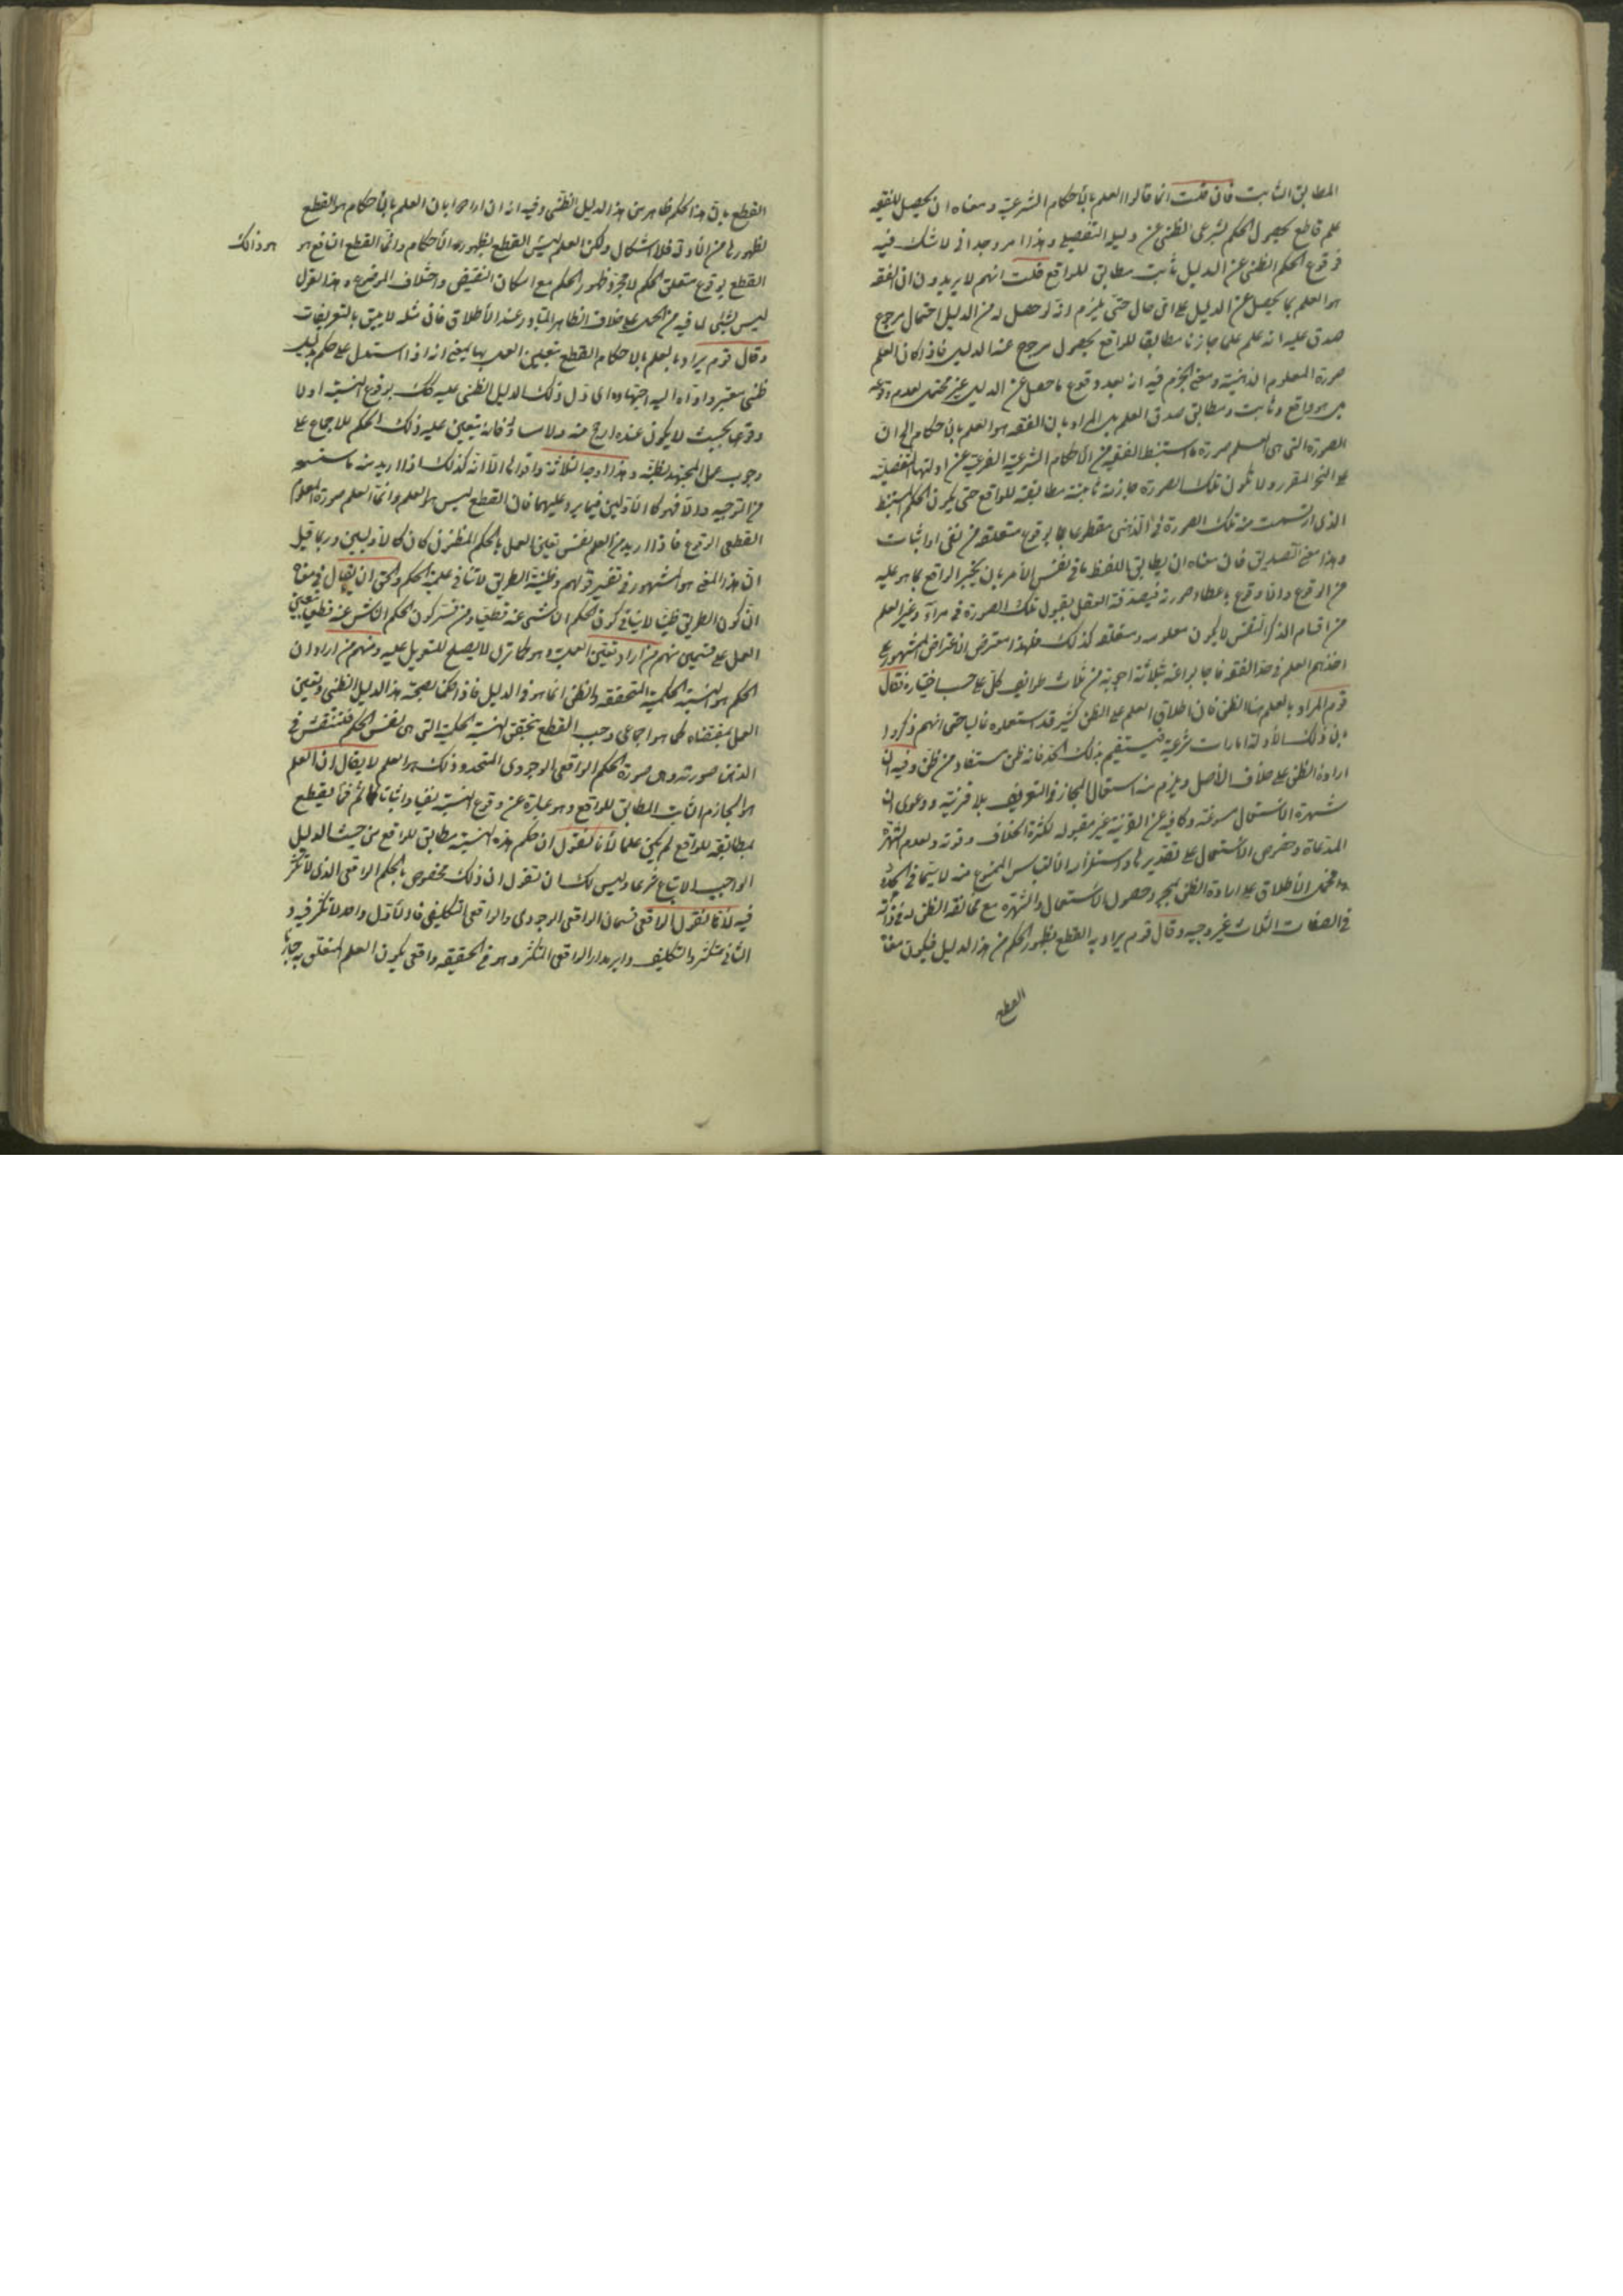 المطابق الثابت فان قلت انما قالوا العلم بالأحكام الشرعية ومعناه ان يحصل للفقيه
علم قاطع بحصول الحكم الشرعى الظنى عن دليله التفصيلى وهذا امر وجدانى لا شك فيه
فوقوع الحكم الظنى عن الدليل ثابت مطابق للواقع قلت انهم لا يريدون ان الفقه
هو العلم بما يحصل عن الدليل على اى حال حتى يلزم انه لو حصل له من الدليل احتمال مرجوح
صدق عليه انه علم علما جازما مطابقا للواقع بحصول مرجوح عند الدليل فاذا كان العلم
صورة المعلوم الذهنية ومعنى الجزم فيه انه بعد وقوع ما حصل عن الدليل غير محتمل لعدم وقوعه
بل هو واقع وثابت ومطابق صدق العلم بل المراد بان الفقه هو العلم بالأحكام الخ ان
الصورة التى هى العلم صورة ما استنبط الفقيه من الاحكام الشرعية الفرعية عن ادلتها التفصيلية
على النحو المقرر ولا تكون تلك الصورة جازمة ثابتة مطابقة للواقع حتى يكون الحكم المستنبط
الذى ارتسمت منه تلك الصورة فى الذهن مقطوعا بوقوع متعلقه من نفى او اثبات
وهذا معنى التصديق فان معناه ان يطابق اللفظ ما فى نفس الأمر بان يخبر الواقع بما هو عليه
من الوقوع واللا وقوع باعطاء صورته فيصدقه العقل بقبول تلك الصورة فى مرآته وغير العلم
من اقسام الذكر النفسى لا يكون معلومه ومتعلقه كذلك فلهذا اعترض الاعتراض المشهور على
اخذهم العلم فى حد الفقه فاجابوا عنه بثلاثة اجوبة من ثلاث طوائف كل على حسب اختياره فقال
قوم المراد بالعلم هنا الظن فان اطلاق العلم على الظن كثير قد استعملوه غالبا حتى انهم ذكروا
بان ذلك الأدلة امارات شرعية فيستقيم بذلك الحد فانه ظن مستفاد من ظن وفيه ان
ارادة الظن على خلاف الأصل ويلزم منه استعمال المجاز فى التعريف بلا قرينة ودعوى ان
شهرة الاستعمال مسوغة وكافية عن القرينة غير مقبولة لكثرة الخلاف وقوته ولعدم الشهرة
المدعاة وخصوص الاستعمال على تقديرها واستلزام الالتباس الممنوع منه لا سيما فى الحدود
الاطلاق على ارادة الظن بمجرد حصول الاستعمال والشهرة مع مخالفة الظن له فى ذاته
فى الصفات الثلاث غير وجيه وقال قوم يراد به القطع بظهور الحكم من هذا الدليل فيكون معناه
القطع
القطع بان هذا الحكم ظاهر من هذا الدليل الظنى وفيه انه ان ارادوا بان العلم بالأحكام هو القطع
بظهورها من الأدلة فلا اشكال ولكن العلم ليس القطع بظهور الأحكام وانما القطع النافع هو
هو ذلك
القطع بوقوع متعلق الحكم لا مجرد ظهور الحكم مع امكان النقيض واختلاف الموضوع وهذا القول
ليس بشئ لما فيه من الحمل على خلاف الظاهر المتبادر عند الأطلاق فان مثله لا يليق بالتعريفات
وقال قوم يراد بالعلم بالاحكام القطع بتعين العمل بها بمعنى انه اذا استدل على حكم بدليل
ظنى معتبر واداه اليه اجتهاده اى دل ذلك الدليل الظنى عليه كذلك بوقوع النسبة او لا
وقوعها بحيث لا يكون عنده ارجح منه ولا مساو له فانه يتعين عليه ذلك الحكم للاجماع على
وجوب عمل المجتهد بظنه وهذا اوجه الثلاثة واقواها الا انه كذلك اذا اريد منه ما سنسمعه
من التوجيه والا فهو كالأولين فيما يرد عليهما فان القطع ليس هو العلم وانما العلم صورة المعلوم
القطعى الوقوع فاذا اريد من العلم نفس تعين العمل بالحكم المظنون كان كالأوليين وربما قيل
ان هذا المعنى هو المشهور فى تفسير قولهم وظنية الطريق لا تنافى علمية الحكم والحق ان يقال فى معناه
ان كون الطريق ظنيا لا ينافى كون الحكم الناشى عنه قطعيا ومن فسر كون الحكم الناشى عنه قطعى بتعين
العمل على قسمين منهم من اراد تعين العمل وهو كما ترى لا يصلح للتعويل عليه ومنهم من اراد ان
الحكم هو النسبة الحكمية المتحققة والظن انما هو فى الدليل فاذا حكمنا بصحة هذا الدليل الظنى وتعين
العمل بمقتضاه كما هو اجماعى وجب القطع بتحقق النسبة الحكمية التى هى نفس الحكم فتنتقش فى
الذهن صورته وهى صورة الحكم الواقعى الوجودى المتحد وذلك هو العلم لا يقال ان العلم
هو الجازم الثابت المطابق للواقع وهو عبارة عن وقوع النسبة نفيا واثباتا فما لم يقطع
بمطابقته للواقع لم يكن علما لأنا نقول ان حكم هذه النسبة مطابق للواقع من حيث الدليل
الواجب الاتباع شرعا وليس لك ان تقول ان ذلك مخصوص بالحكم الواقعى الذى لا تكثر
فيه لأنا نقول الواقعى قسمان الواقعى الوجودى والواقعى التكليفى فالأول واحد لا تكثر فيه و
الثانى متكثر والتكليف دائر مدار الواقعى المتكثر وهو فى الحقيقة واقعى يكون العلم المتعلق به جازما